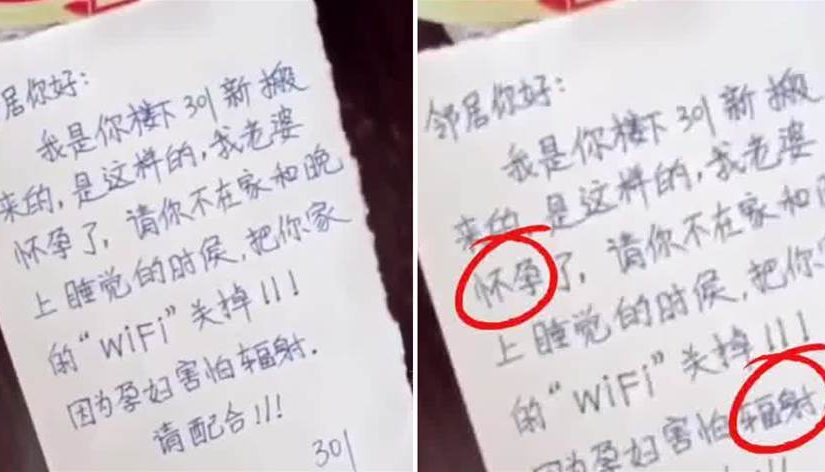 居你好：
我是你楼下301新搬
来的，是这样的，我老婆
怀孕了，请你不在家和晚
上睡觉的时候，把你家
的“WiFi”关掉！！！
因为孕妇害怕辐射．
请配合！！！
301
邻居你好：
我是你楼下301新搬
来的，是这样的，我老婆
怀孕了，请你不在家和晚
上睡觉的时候，把你家
的“WiFi”关掉！！！
因为孕妇害怕辐射